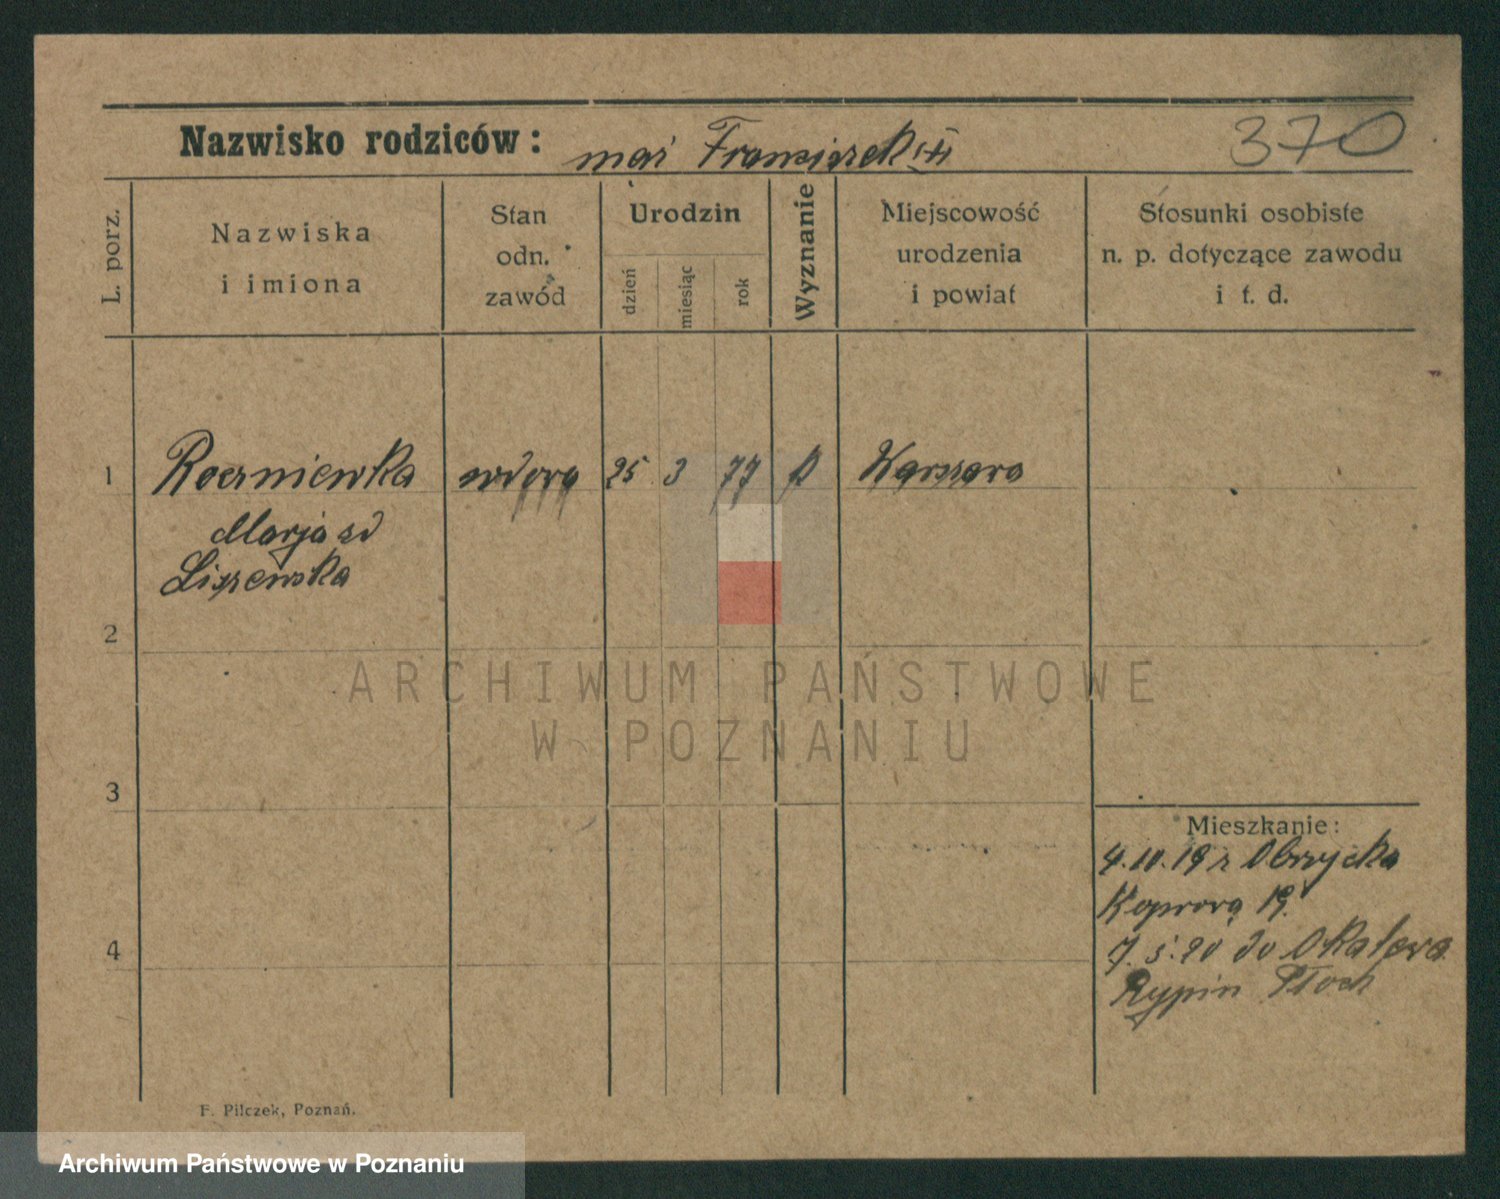 Nazwisko rodziców: mąż Franciszek (+)
370
L. porz.
Nazwiska
i imiona
Stan
odn.
zawód
Urodzin
dzień
miesiąc
rok
Wyznanie
Miejscowość
urodzenia
i powiat
Stosunki osobiste
n. p. dotyczące zawodu
i t. d.
1
wdowa 25 3 77 k Warszawa
Marja zd
Liszewska
2
ARCHIWUM PAŃSTWOWE
W POZNANIU
3
Mieszkanie:
4.10.19 z Obrzycka
19.
4
7.5.20 do
Rypin Płock
F. Pilczek, Poznań.
Archiwum Państwowe w Poznaniu